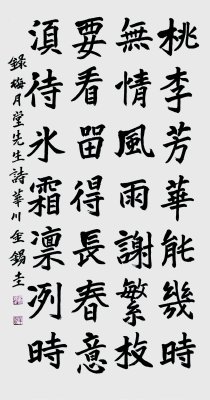 桃李芳華能幾時
無情風雨謝繁枝
要看畱得長春意
須待氷霜凛冽時
錄梅月堂先生詩華川金錫圭